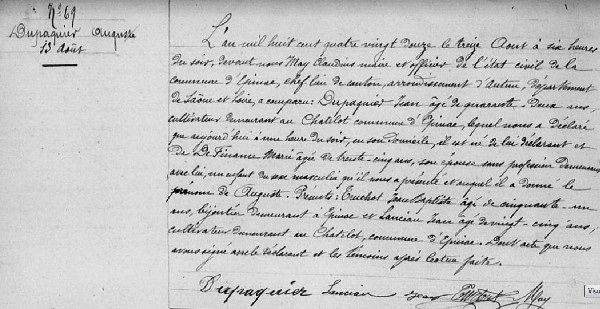 N° 69
Dupaquier Auguste
13 Août
L'an mil huit cent quatre vingt douze le treize Aout à six heures
du soir, devant nous May Claudius maire et officier de l'état civil de la
commune d'Epinac, chef lieu de canton, arrondissement d'Autun, département
de Saône et Loire, a comparu: Dupaquier Jean âgé de quarante deux ans,
cultivateur demeurant au Chatelot commune d'Epinac, lequel nous a déclaré
que aujourd'hui à une heure du soir, en son domicile, il est né de lui déclarant et
de De Finance Marie âgée de trente-cinq ans, son épouse sans profession demeurant
avec lui, un enfant du sexe masculin qu'il nous a présenté et auquel il a donné le
prénom de Auguste. Présents: Truchot Jean Baptiste âgé de cinquante-un
ans, bijoutier demeurant à Epinac et Lancian Jean âgé de vingt-cinq ans,
cultivateur demeurant au Chatelot, commune d'Epinac. Dont acte que nous
avons signé avec le déclarant et les témoins après lecture faite.
Dupaquier Lancian Jean Truchot May